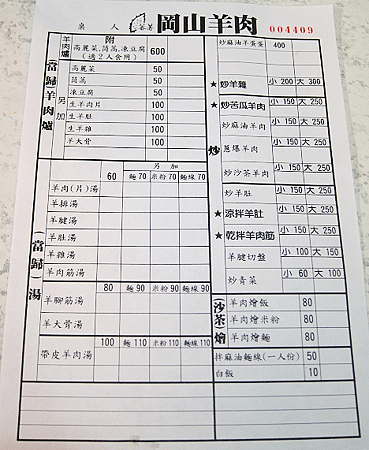 桌 人 岡山羊肉
004409
當歸羊肉爐
羊肉爐 附 高麗菜,茼蒿,凍豆腐 (適2人食用) 600
另加
高麗菜 50
茼蒿 50
凍豆腐 50
生羊肉片 100
生羊肚 100
生羊雜 100
羊大骨 100
(當歸)湯
另加
60 麵70 米粉70 麵線70
羊肉(片)湯
羊排湯
羊腱湯
羊肚湯
羊雜湯
羊肉筋湯
80 麵90 米粉90 麵線90
羊腳筋湯
羊大骨湯
100 麵110 米粉110 麵線110
帶皮羊肉湯
炒
炒麻油羊蛋蛋 400
★炒羊雜 小200 大300
★炒苦瓜羊肉 小150 大250
炒麻油羊肉 小150 大250
蔥爆羊肉 小150 大250
炒沙茶羊肉 小150 大250
炒羊肚 小150 大250
★涼拌羊肚 小150 大250
★乾拌羊肉筋 小150 大250
羊腱切盤 小100 大150
炒青菜 小60 大100
(沙茶)燴
羊肉燴飯 80
羊肉燴米粉 80
羊肉燴麵 80
拌麻油麵線(一人份) 50
白飯 10